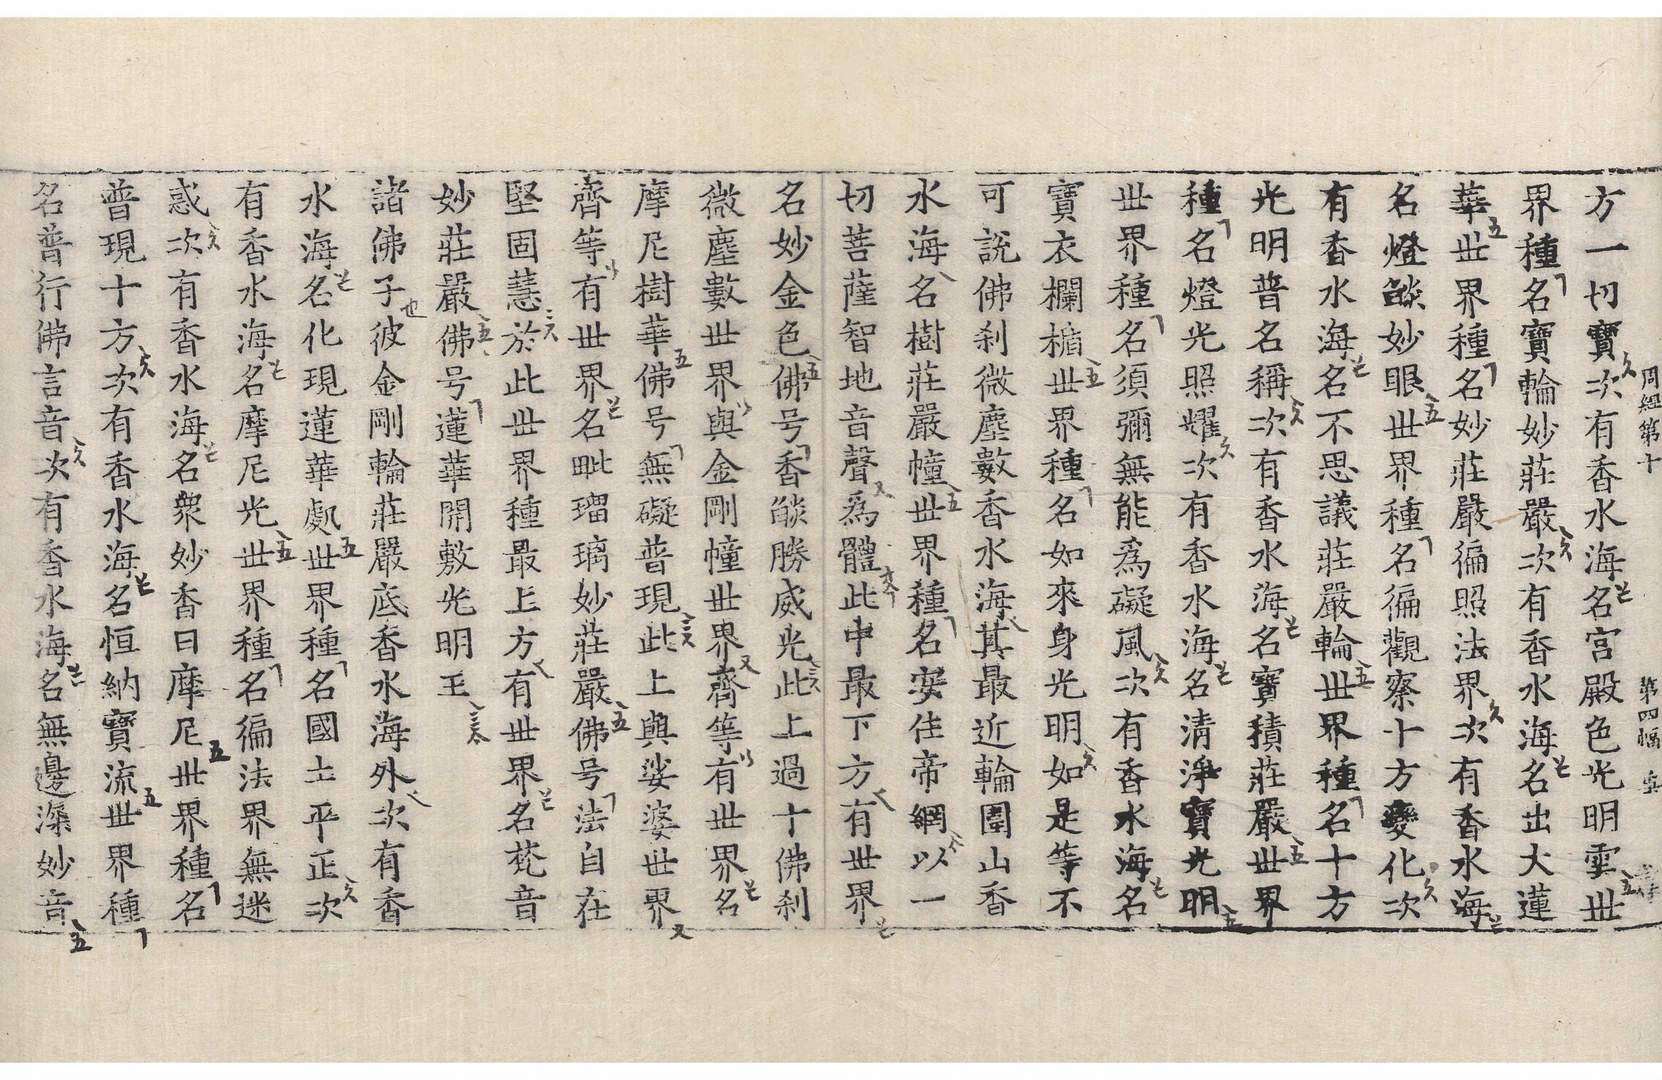 周経第十 第四幅
方一切寶次有香水海名宮殿色光明雲世
界種名寶輪妙莊嚴次有香水海名出大蓮
華世界種名妙莊嚴徧照法界次有香水海
名燈燄妙眼世界種名徧觀察十方變化次
有香水海名不思議莊嚴輪世界種名十方
光明普名稱次有香水海名寶積莊嚴世界
種名燈光照耀次有香水海名清淨寶光明
世界種名須彌無能爲礙風次有香水海名
寶衣欄楯世界種名如來身光明如是等不
可說佛刹微塵數香水海其最近輪圍山香
水海名樹莊嚴幢世界種名安住帝網以一
切菩薩智地音聲爲體此中最下方有世界
名妙金色佛号香燄勝威光此上過十佛刹
微塵數世界與金剛幢世界齊等有世界名
摩尼樹華佛号無礙普現此上與娑婆世界
齊等有世界名毗瑠璃妙莊嚴佛号法自在
堅固慧於此世界種最上方有世界名梵音
妙莊嚴佛号蓮華開敷光明王
諸佛子彼金剛輪莊嚴底香水海外次有香
水海名化現蓮華處世界種名國土平正次
有香水海名摩尼光世界種名徧法界無迷
惑次有香水海名衆妙香日摩尼世界種名
普現十方次有香水海名恒納寶流世界種
名普行佛言音次有香水海名無邊深妙音